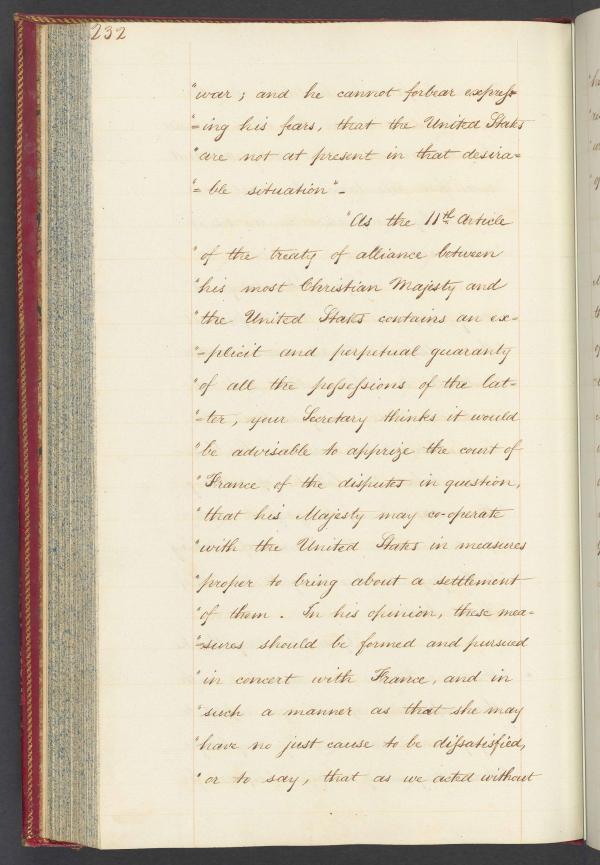 232
"war; and he cannot forbear express-
"=ing his fears, that the United States
"are not at present in that desira=
"=ble situation"-
"As the 11th Article
"of the treaty of alliance between
"his most Christian Majesty and
"the United States contains an ex-
"=plicit and perpetual guaranty
"of all the possessions of the lat-
"=ter, your Secretary thinks it would
"be advisable to apprize the court of
"France of the disputes in question,
"that his Majesty may co-operate
"with the United States in measures
"proper to bring about a settlement
"of them. In his opinion, these mea-
"=sures should be formed and pursued
"in concert with France, and in
"such a manner as that she may
"have no just cause to be dissatisfied,
"or to say, that as we acted without